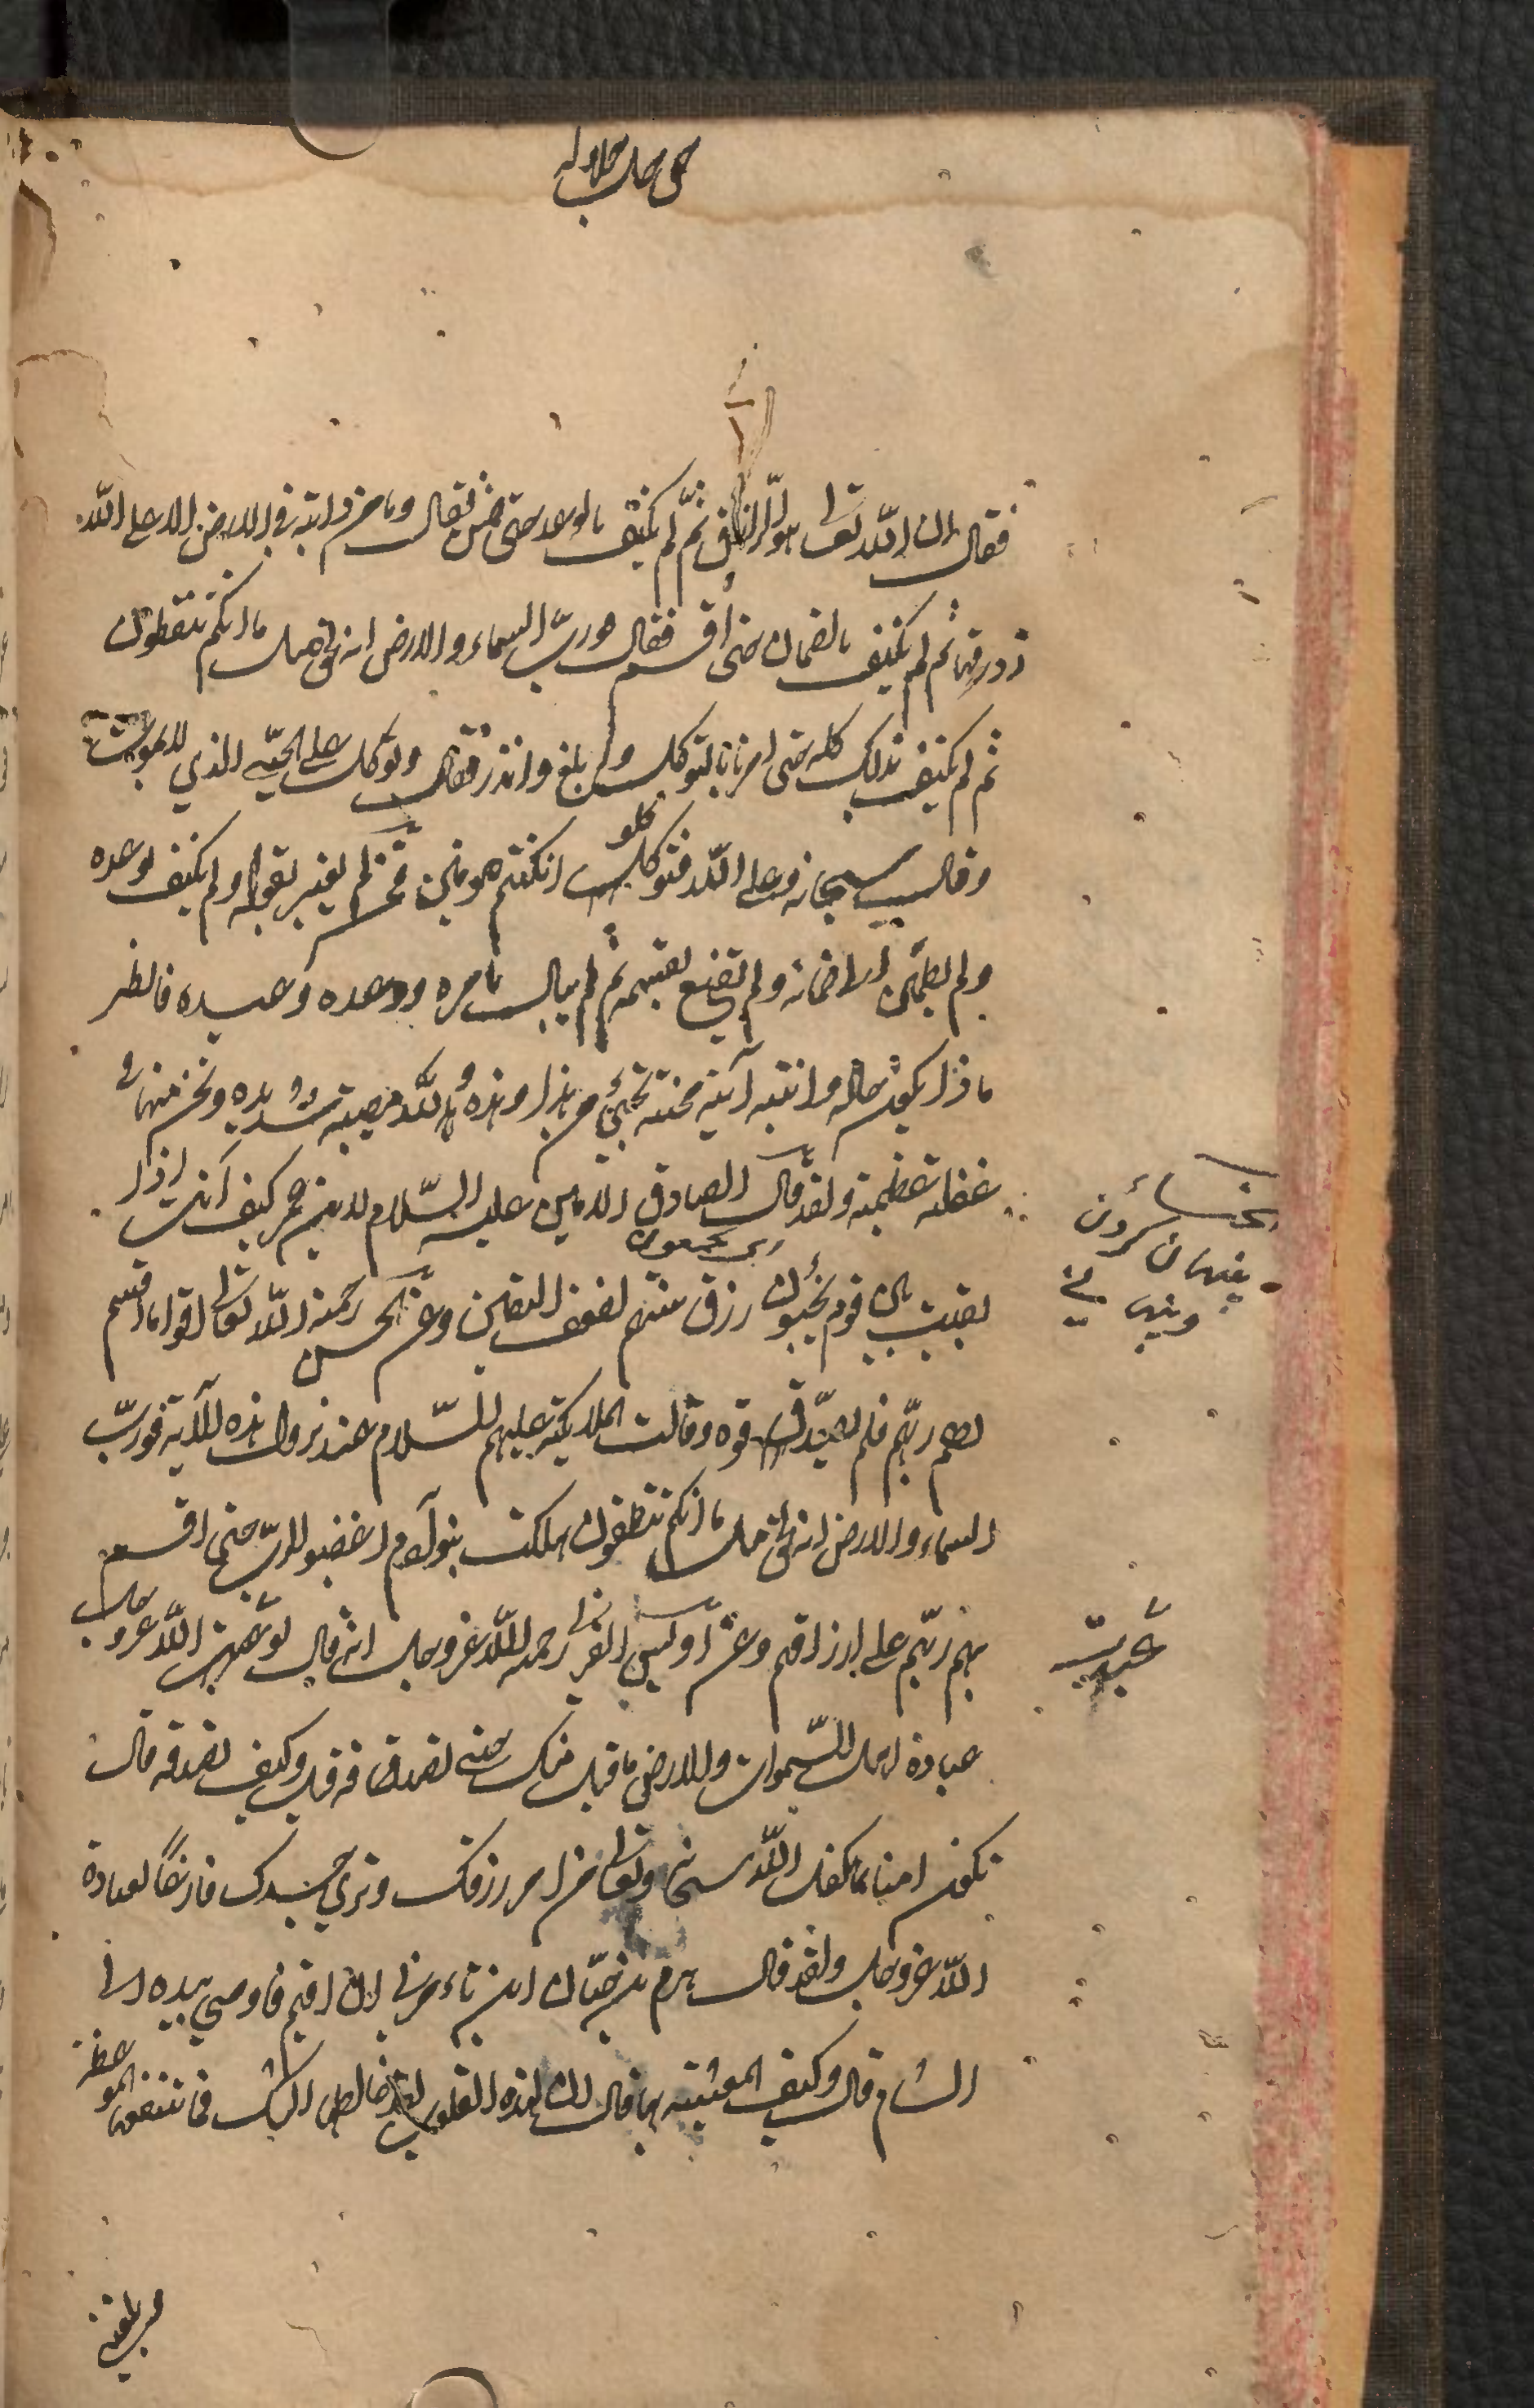 حق جل جلاله
فقال ان الله تعالى هو الرزاق ثم لم يكتف بالوعد حتى ضمن فقال وما من دابة في الارض الا على الله
رزقها ثم لم يكتف بالضمان حتى اقسم فقال فورب السماء والارض انه لحق مثل ما انكم تنطقون
ثم لم يكتف بذلك كله حتى امرنا بالتوكل وابلغ وانذر فقال وتوكل على الحي الذي لا يموت
وقال سبحانه وعلى الله فتوكلوا ان كنتم مومنين فمن لم يعتبر بقوله ولم يكتف بوعده
ولم يطمئن الى ضمانه ولم يقنع بقسمه ثم لم يبال بامره ووعده وعيده فانظر
ماذا يكون حاله وانتبه آية محنة تجيئ من هذا وهذه والله مصيبة شديدة ونحن منها في
غفلة عظيمة ولقد قال الصادق الامين عليه السلام لابن عمر كيف انت اذا
بقيت بين قوم يخبئون رزق سنتهم لضعف اليقين وعن الحسن رحمة الله تعالى اقواما اقسم
لهم ربهم فلم يصدقوه وقالت الملايكة عليهم السلام عند نزول هذه الآية فورب
السماء والارض انه لحق مثل ما انكم تنطقون هلكت بنو آدم اغضبوا الرب حتى اقسم
بهم ربهم على ارزاقهم وعن اويس القرني رحمه الله عز وجل انه قال لو عبدت الله عز وجل
عبادة اهل السموات والارض ما قبل منك حتى تصدقه قيل وكيف تصدقه قال
تكون امنا بما تكفل الله سبحانه وتعالى من امر رزقك وترى جسدك فارغا لعبادة
الله عز وجل ولقد قال هرم بن حيان اين تامرني ان اقيم فاومى بيده الى
الشام قال وكيف المعيشة بها قال ان هذه القلوب لقد خالطها الشك فما تنفعها الموعظة
يخبئون
عبدت